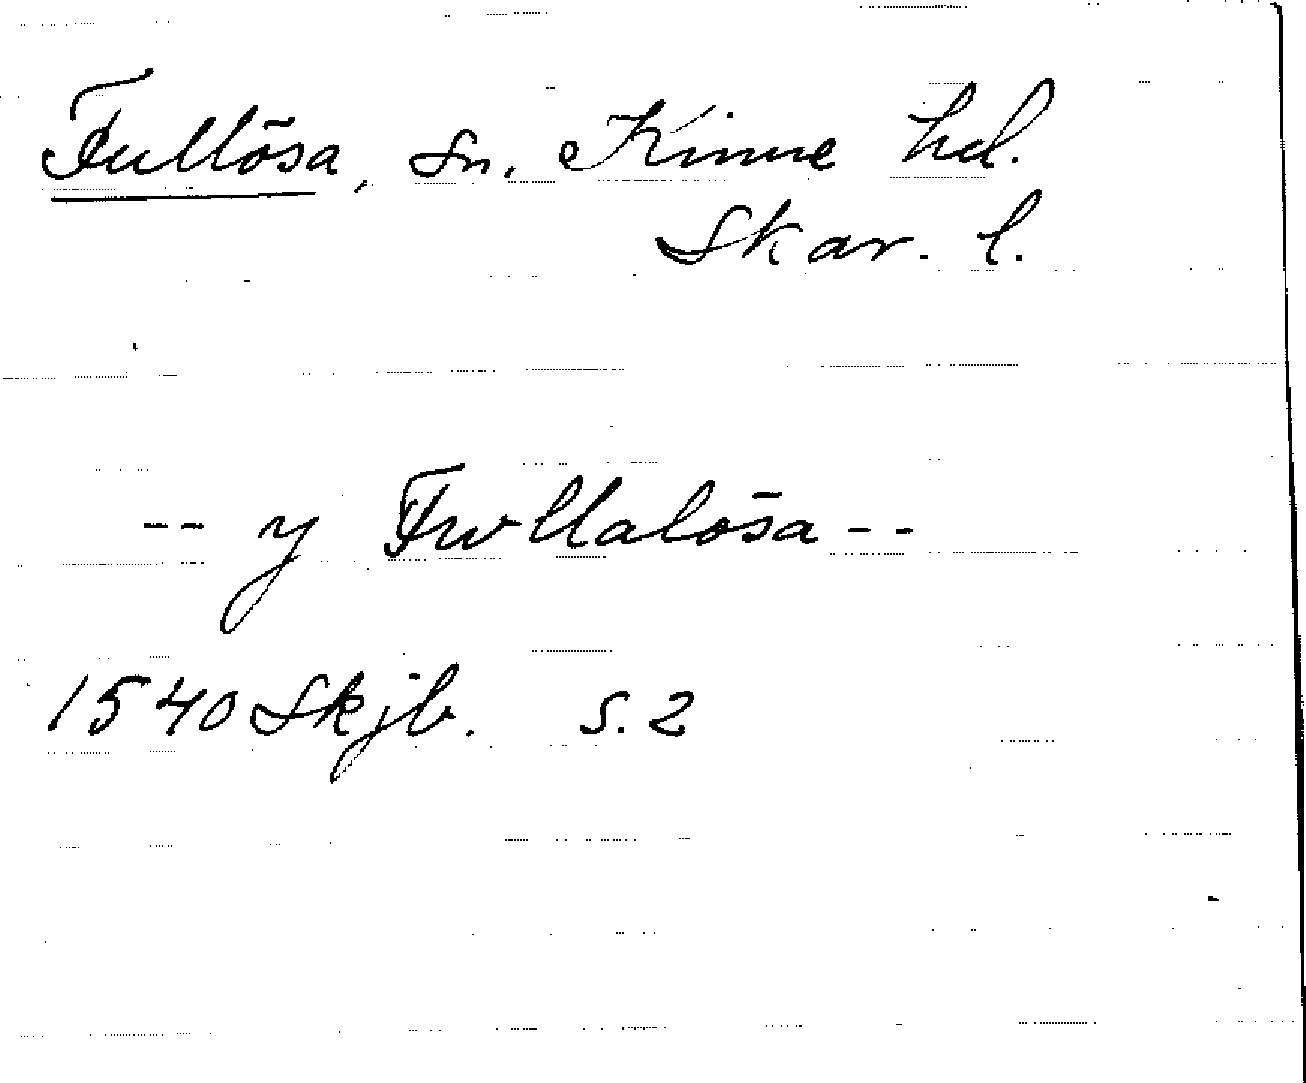 Fullösa, sn. Kinne hd.
Skar. l.
-- y Fwllalösa --
1540 Skjb. s. 2